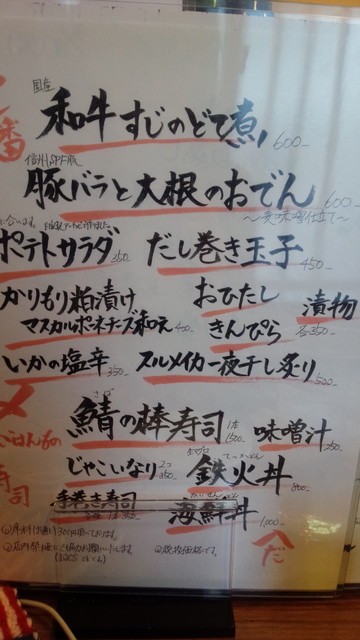 一番
国産
和牛すじのどて煮
600-
信州SPF豚
豚バラと大根のおでん
600-
ポテトサラダ
350-
だし巻き玉子
450-
かりもり粕漬け
おひたし
漬物
マスカルポーネチーズ和え
400-
きんぴら
各350-
いかの塩辛
350-
スルメイカ一夜干し炙り
500-
〆
さば
鯖の棒寿司
1本
1500-
味噌汁
250-
ごはんもの
じゃこいなり
2コ
350-
鉄火丼
800-
寿司
手巻き寿司
海鮮丼
1,000-